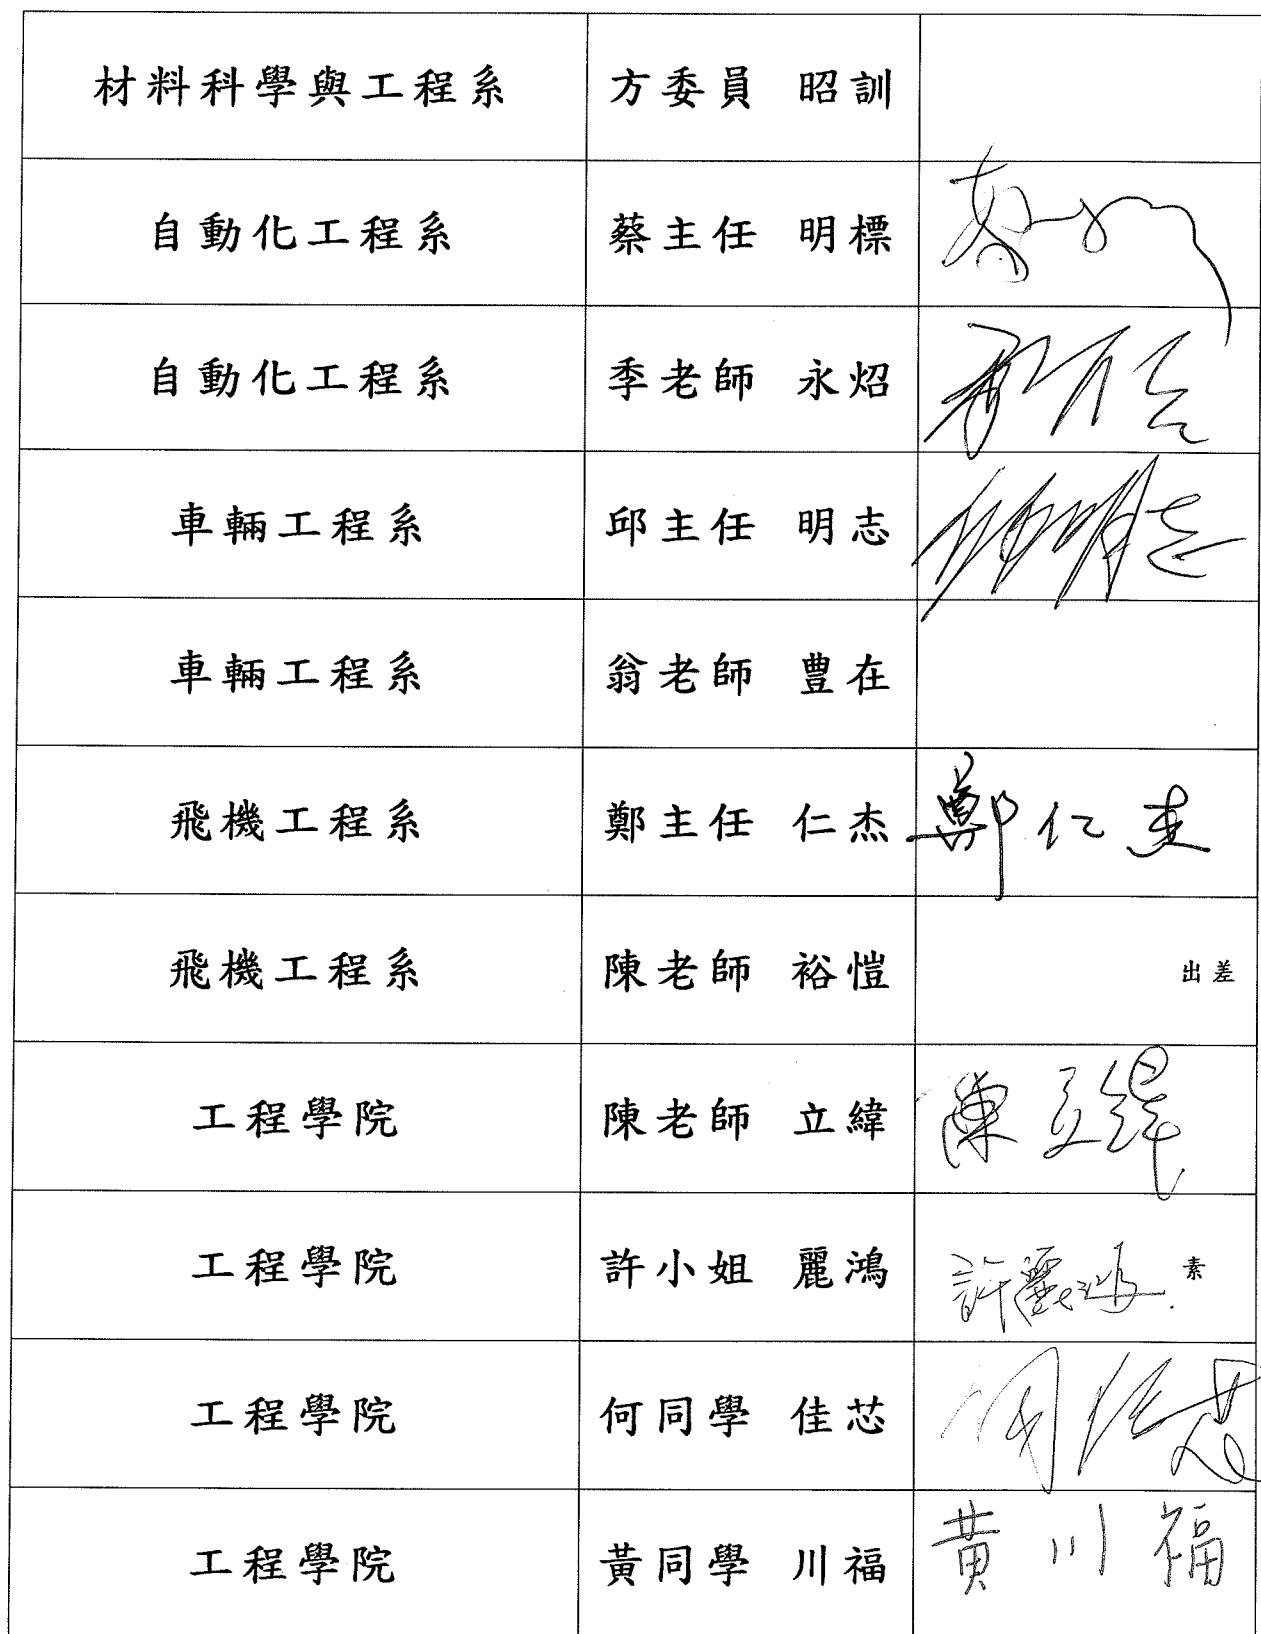 材料科學與工程系 方委員 昭訓
自動化工程系 蔡主任 明標
自動化工程系 季老師 永炤
車輛工程系 邱主任 明志 邱明志
車輛工程系 翁老師 豊在
飛機工程系 鄭主任 仁杰 鄭仁杰
飛機工程系 陳老師 裕愷 出差
工程學院 陳老師 立緯 陳立緯
工程學院 許小姐 麗鴻 許麗鴻 素
工程學院 何同學 佳芯 何佳芯
工程學院 黃同學 川福 黃川福